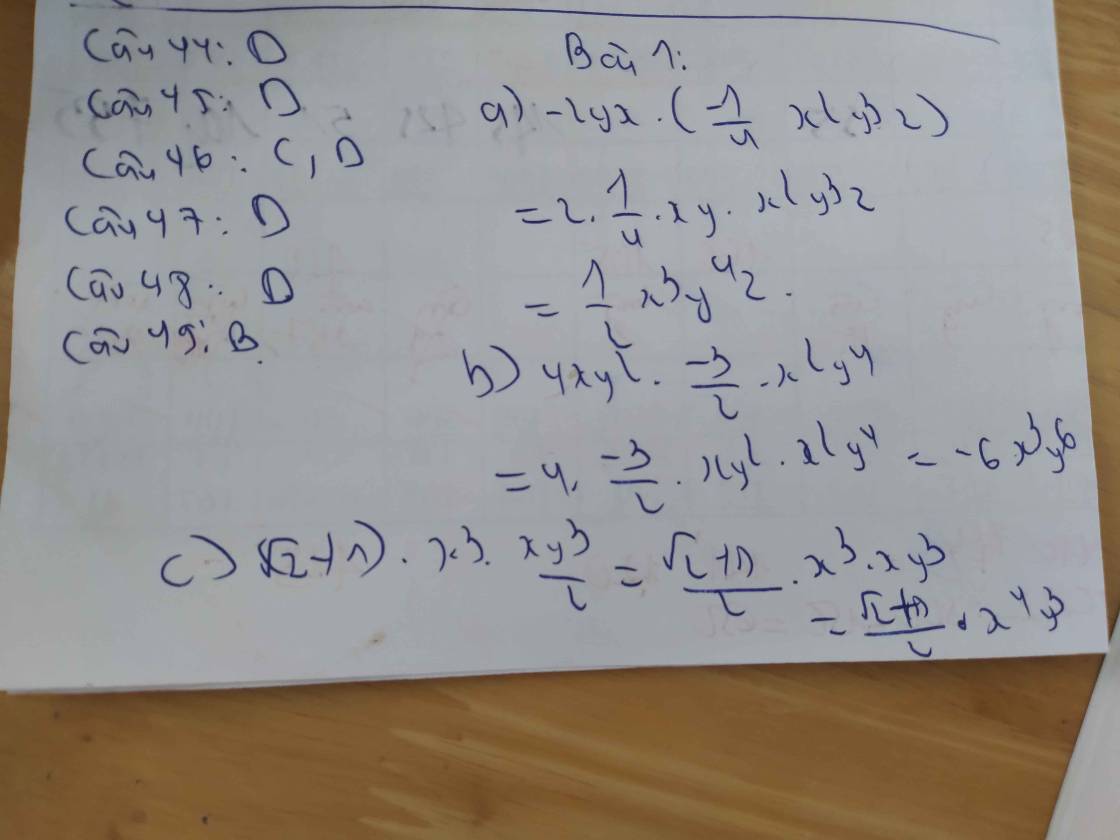 Câu 44: D
Câu 45: D
Câu 46: C, D
Câu 47: D
Câu 48: D
Câu 49: B.
Bài 1:
a) -2yx · (-1/4 x²y³z)
= 2 · 1/4 · xy · x²y³z
= 1/2 x³y⁴z.
b) 4xy² · -3/2 · x²y⁴
= 4 · -3/2 · xy² · x²y⁴ = -6x³y⁶
c) (√2+1) · x³ · xy³/2 = √2+1/2 · x³ · xy³
= √2+1/2 · x⁴y³